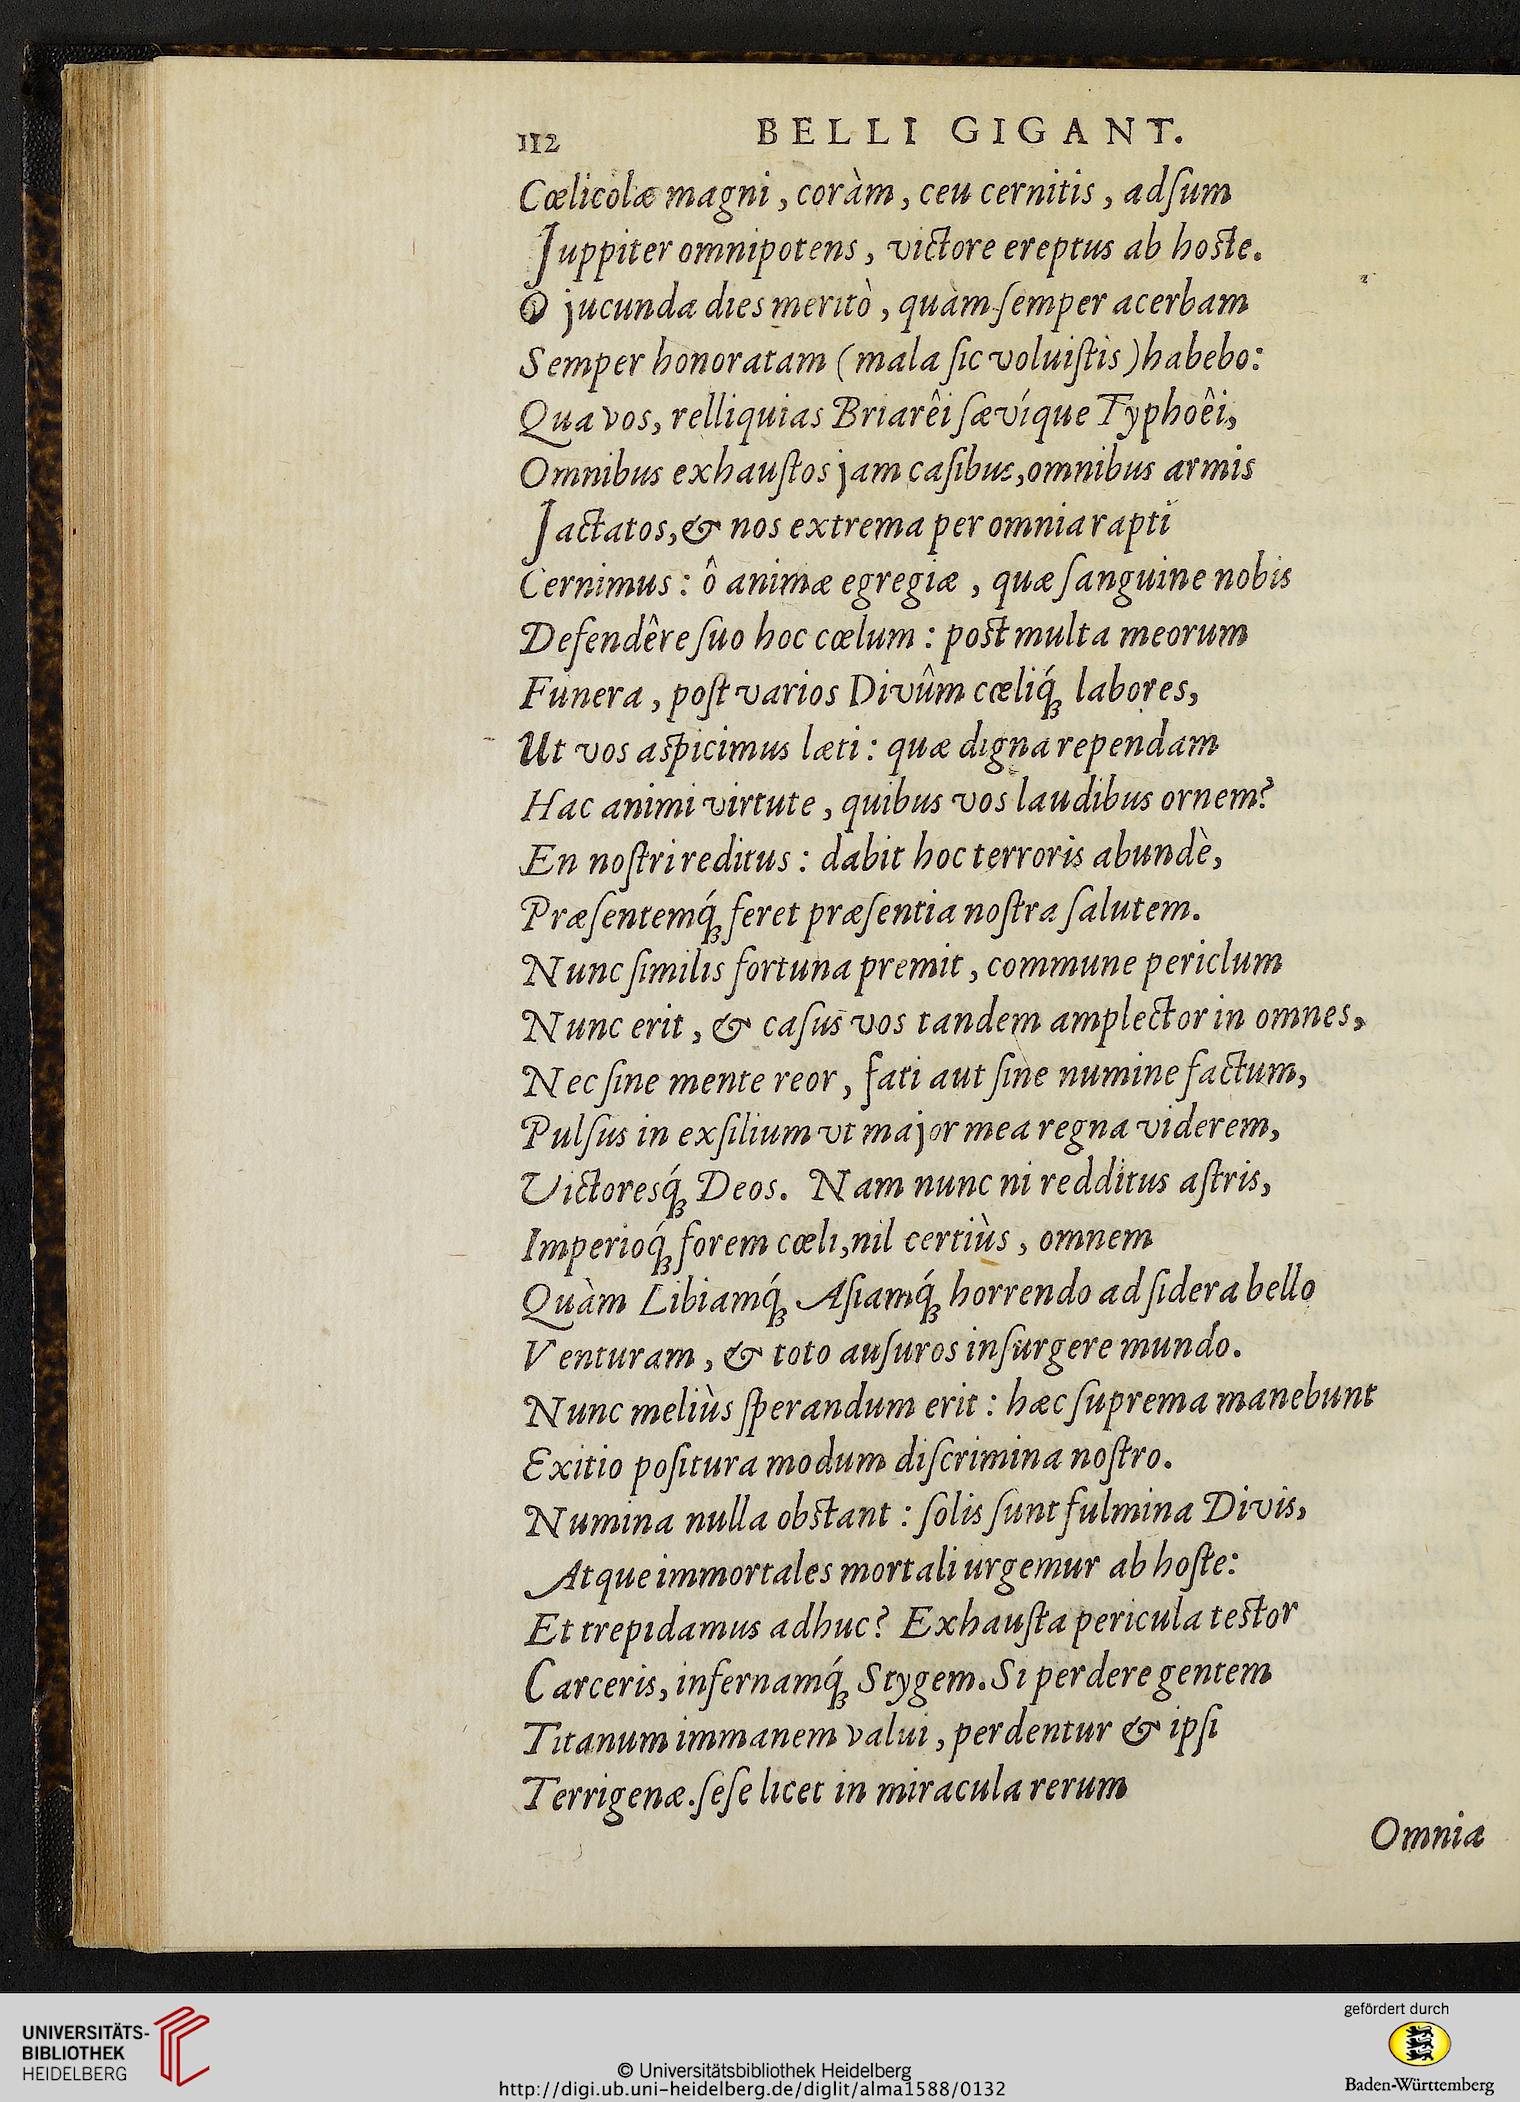 112 BELLI GIGANT.
Cœlicolæ magni, coràm, ceu cernitis, adſum
Juppiter omnipotens, victore ereptus ab hoſte.
O jucunda dies meritò, quàm ſemper acerbam
Semper honoratam (mala ſic voluiſtis) habebo:
Qua vos, relliquias Briarêi ſævíque Typhoêi,
Omnibus exhauſtos jam caſibus, omnibus armis
Jactatos, & nos extrema per omnia rapti
Cernimus: ô animæ egregiæ, quæ ſanguine nobis
Defendêre ſuo hoc cœlum: poſt multa meorum
Funera, poſt varios Divûm cœliq́ꝫ labores,
Ut vos aſpicimus læti: quæ digna rependam
Hac animi virtute, quibus vos laudibus ornem?
En noſtri reditus: dabit hoc terroris abundè,
Præſentemq́ꝫ feret præſentia noſtra ſalutem.
Nunc ſimilis fortuna premit, commune periclum
Nunc erit, & caſus vos tandem amplector in omnes,
Nec ſine mente reor, fati aut ſine numine factum,
Pulſus in exſilium vt major mea regna viderem,
Victoresq́ꝫ Deos. Nam nunc ni redditus aſtris,
Imperioq́ꝫ forem cœli, nil certiùs, omnem
Quàm Libiamq́ꝫ Aſiamq́ꝫ horrendo ad ſidera bello
Venturam, & toto auſuros inſurgere mundo.
Nunc meliùs ſperandum erit: hæc ſuprema manebunt
Exitio poſitura modum diſcrimina noſtro.
Numina nulla obſtant: ſolis ſunt fulmina Divis,
Atque immortales mortali urgemur ab hoſte:
Et trepidamus adhuc? Exhauſta pericula teſtor
Carceris, infernamq́ꝫ Stygem. Si perdere gentem
Titanum immanem valui, perdentur & ipſi
Terrigenæ. ſeſe licet in miracula rerum
Omnia
UNIVERSITÄTS-
BIBLIOTHEK
HEIDELBERG
© Universitätsbibliothek Heidelberg
http://digi.ub.uni-heidelberg.de/diglit/alma1588/0132
gefördert durch
Baden-Württemberg